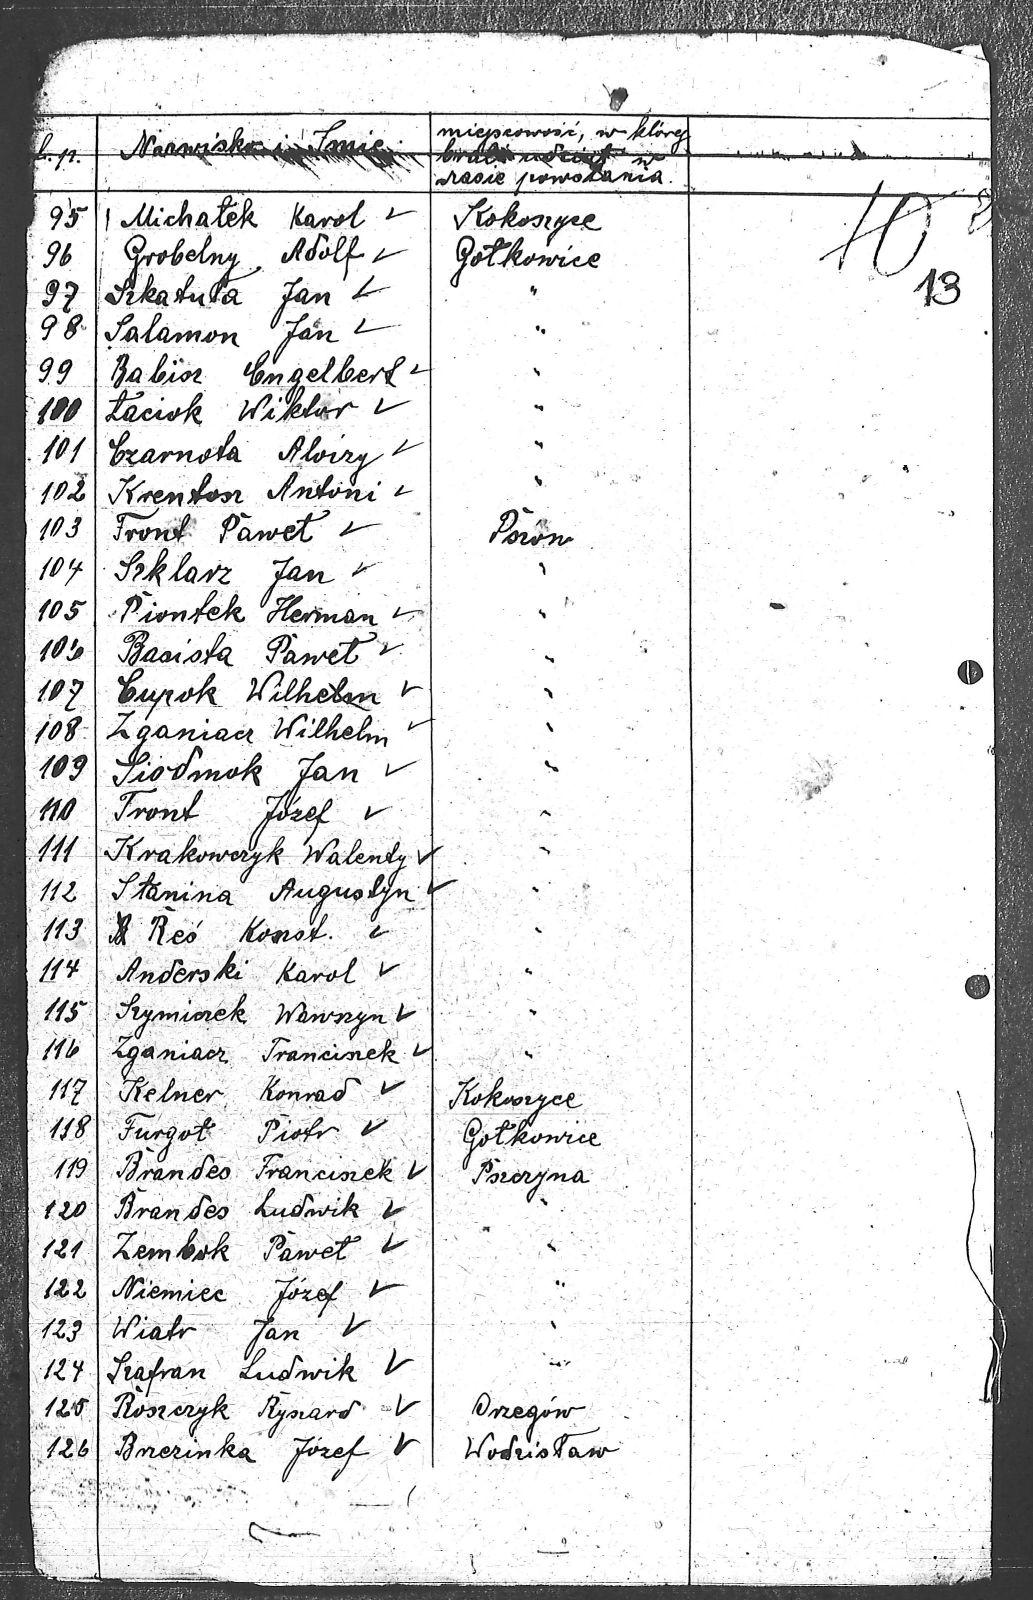 L.p. Nazwisko i Imię miejscowość, w której
brał udział w
czasie powstania.
10
13
95 Michałek Karol ✓ Kokoszyce
96 Grobelny Adolf ✓ Gołkowice
97 Szkatuła Jan ✓ "
98 Salamon Jan ✓ "
99 Babisz Engelbert ✓ "
100 Łaciok Wiktor ✓ "
101 Czarnota Alojzy ✓ "
102 Krentosz Antoni ✓ "
103 Front Paweł ✓ Pszów
104 Szklarz Jan ✓ "
105 Piontek Herman ✓ "
106 Basista Paweł ✓ "
107 Cupok Wilhelm ✓ "
108 Zganiacz Wilhelm ✓ "
109 Siodmok Jan ✓ "
110 Front Józef ✓ "
111 Krakowczyk Walenty ✓ "
112 Stanina Augustyn ✓ "
113 Reś Konst. ✓ "
114 Anderski Karol ✓ "
115 Szymiczek Wawszyn ✓ "
116 Zganiacz Franciszek ✓ "
117 Kelner Konrad ✓ Kokoszyce
118 Furgoł Piotr ✓ Gołkowice
119 Brandes Franciszek ✓ Pszczyna
120 Brandes Ludwik ✓ "
121 Zembok Paweł ✓ "
122 Niemiec Józef ✓ "
123 Wiatr Jan ✓ "
124 Szafran Ludwik ✓ "
125 Roszczyk Ryszard ✓ Orzegów
126 Brzezinka Józef ✓ Wodzisław